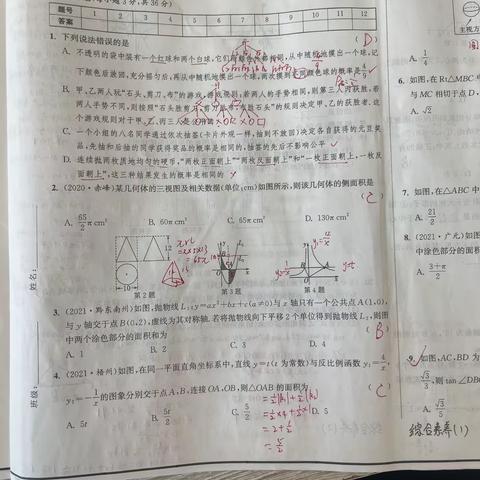 题号 1 2 3 4 5 6 7 8 9 10 11 12
答案
1. 下列说法错误的是 ( D )
A. 不透明的袋中装有一个红球和两个白球,它们
下颜色后放回,充分搅匀后,再从中随机地摸出一个球,两次摸到
B. 甲、乙两人玩“石头、剪刀、布”的游戏,游戏规则:若两人的手势相同,则第三人丙获胜,若
两人手势不同,则按照“石头胜剪刀,剪刀胜布,布胜石头”的规则决定甲、乙的获胜者,这
个游戏规则对于甲、乙、丙三人是公平的
C. 一个小组的八名同学通过依次抽签(卡片外观一样,抽到不放回)决定各自获得的元旦奖
品,先抽和后抽的同学获得奖品的概率是相同的,抽签的先后不影响公平
D. 连续抛两枚质地均匀的硬币,“两枚正面朝上”“两枚反面朝上”和“一枚正面朝上,一枚反
面朝上”,这三种结果发生的概率是相同的
2. (2020·赤峰)某几何体的三视图及相关数据(单位:cm)如图所示,则该几何体的侧面积是
( C )
A. 65/2 π cm² B. 60π cm² C. 65π cm² D. 130π cm²
12
10
第2题 第3题 第4题
3. (2021·黔东南州)如图,抛物线L₁:y=ax²+bx+c(a≠0)与x轴只有一个公共点A(1,0),
与y轴交于点B(0,2),虚线为其对称轴.若将抛物线向下平移2个单位得到抛物线L₂,则图
中两个涂色部分的面积和为 ( B )
A. 1 B. 2 C. 3 D. 4
4. (2021·梧州)如图,在同一平面直角坐标系中,直线y=t(t为常数)与反比例函数y₁=4/x,
y₂=-1/x的图象分别交于点A,B,连接OA,OB,则△OAB的面积为 ( C )
A. 5t B. 5t/2 C. 5/2 D. 5
=2+1/2
=5/2
A. 1/4
6. 如图,在Rt△MBC中
与MC相切于点D,
A. √2
7. 如图,在△ABC中
A. 21/2
8. (2021·广元)如图
中涂色部分的面积
A. 3+π/2
9. 如图,AC,BD为
√3/3,则tan∠DB
A. √3/5
综合素养(1)
姓名:
班级:
主视方